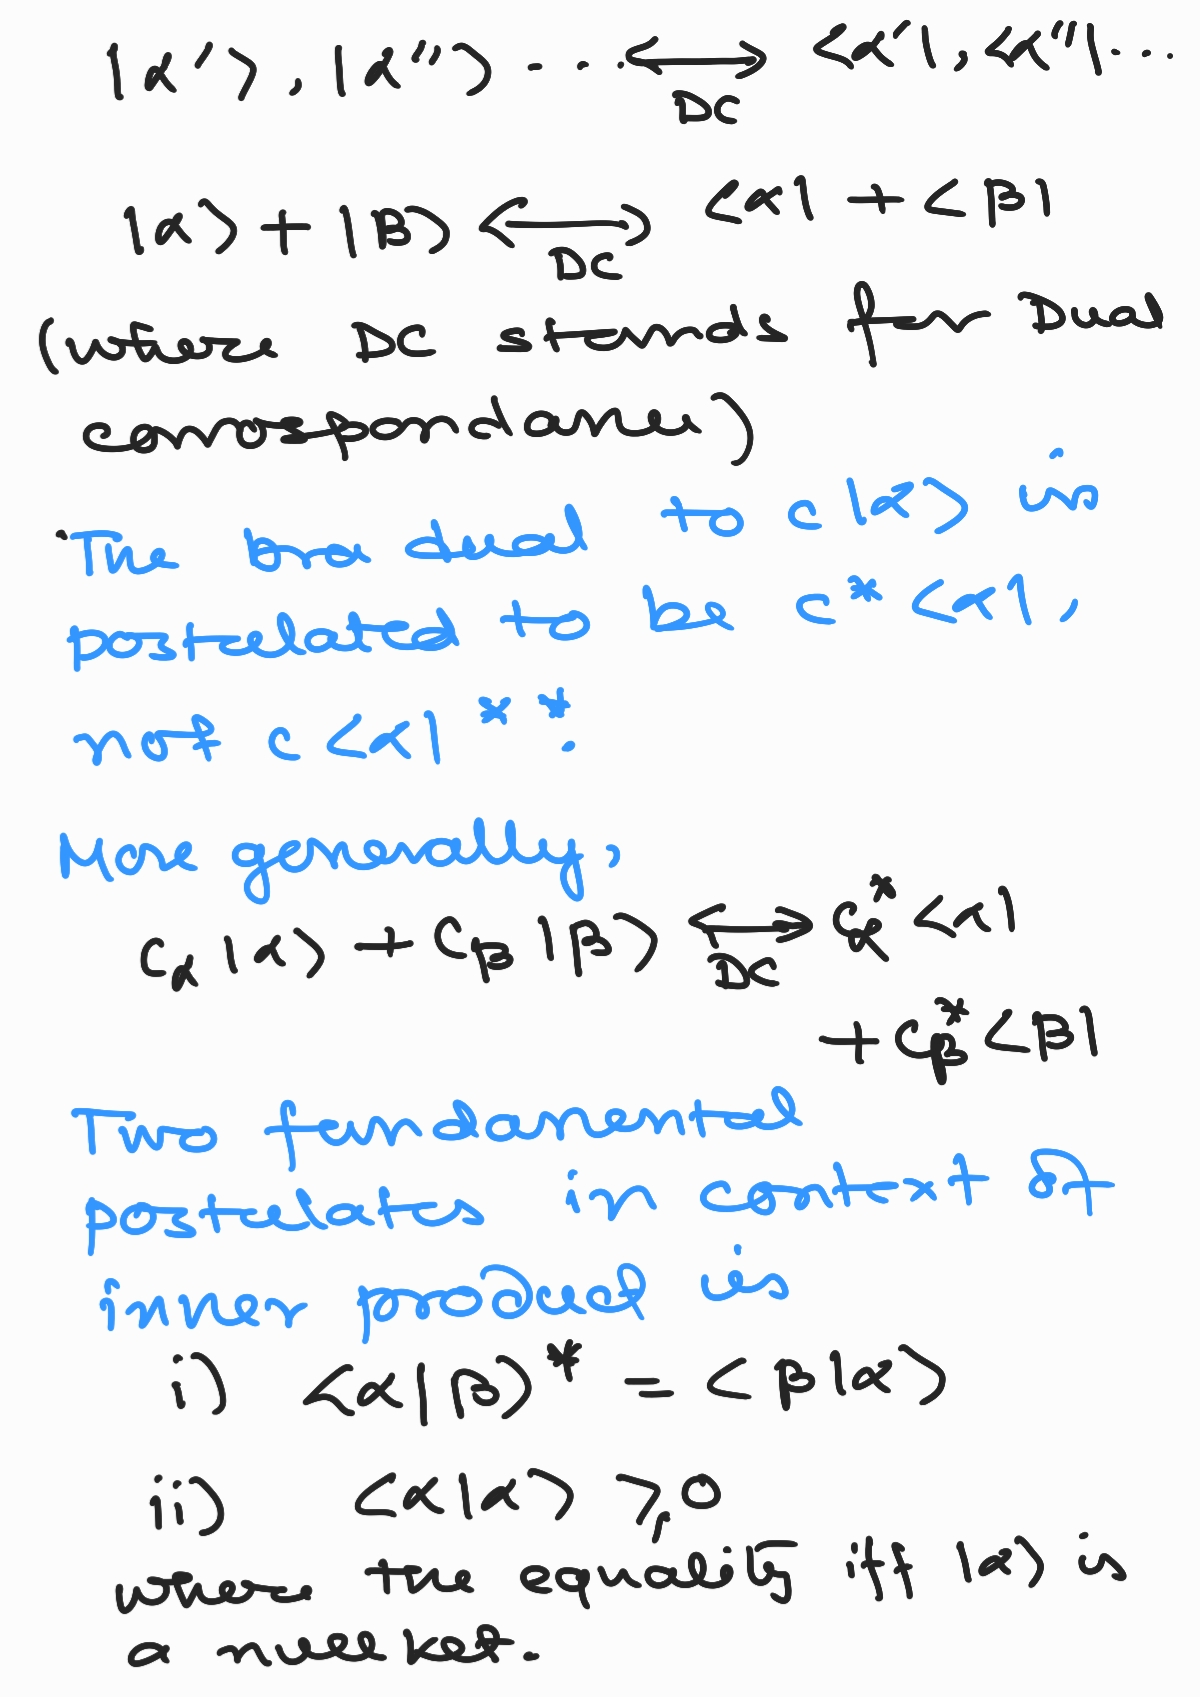 |α'>, |α''> ... <-> <α'|, <α''| ...
DC
|α> + |β> <-> <α| + <β|
DC
(where DC stands for Dual
correspondance)
The bra dual to c|α> is
postulated to be c* <α|,
not c <α| **.
More generally,
C_α |α> + C_β |β> <-> C_α* <α|
DC
+ C_β* <β|
Two fundamental
postulates in context of
inner product is
i) <α|β>* = <β|α>
ii) <α|α> ≥ 0
where the equality iff |α> is
a null ket.